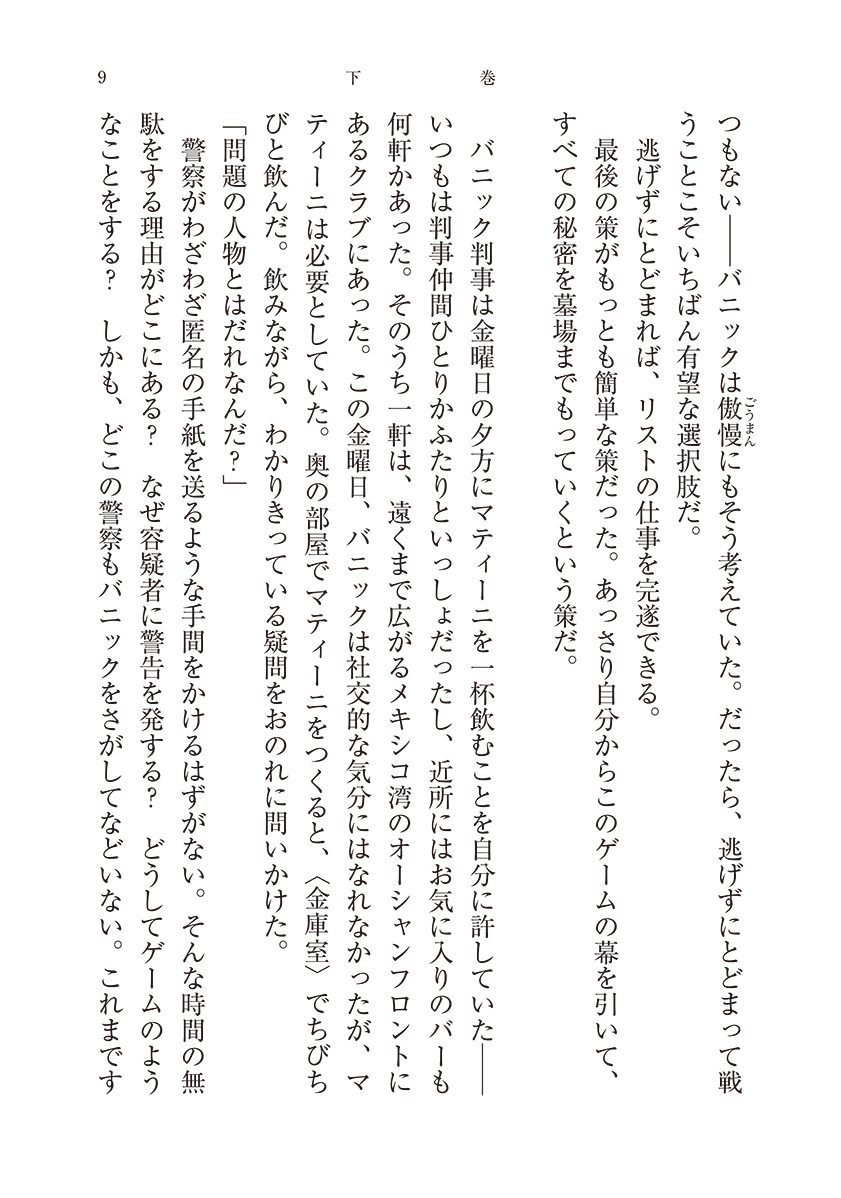 9
下巻
つもない――バニックは傲慢にもそう考えていた。だったら、逃げずにとどまって戦
ごうまん
うことこそいちばん有望な選択肢だ。
逃げずにとどまれば、リストの仕事を完遂できる。
最後の策がもっとも簡単な策だった。あっさり自分からこのゲームの幕を引いて、
すべての秘密を墓場までもっていくという策だ。
バニック判事は金曜日の夕方にマティーニを一杯飲むことを自分に許していた――
いつもは判事仲間ひとりかふたりといっしょだったし、近所にはお気に入りのバーも
何軒かあった。そのうち一軒は、遠くまで広がるメキシコ湾のオーシャンフロントに
あるクラブにあった。この金曜日、バニックは社交的な気分にはなれなかったが、マ
ティーニは必要としていた。奥の部屋でマティーニをつくると、〈金庫室〉でちびち
びと飲んだ。飲みながら、わかりきっている疑問をおのれに問いかけた。
「問題の人物とはだれなんだ?」
警察がわざわざ匿名の手紙を送るような手間をかけるはずがない。そんな時間の無
駄をする理由がどこにある? なぜ容疑者に警告を発する? どうしてゲームのよう
なことをする? しかも、どこの警察もバニックをさがしてなどいない。これまです